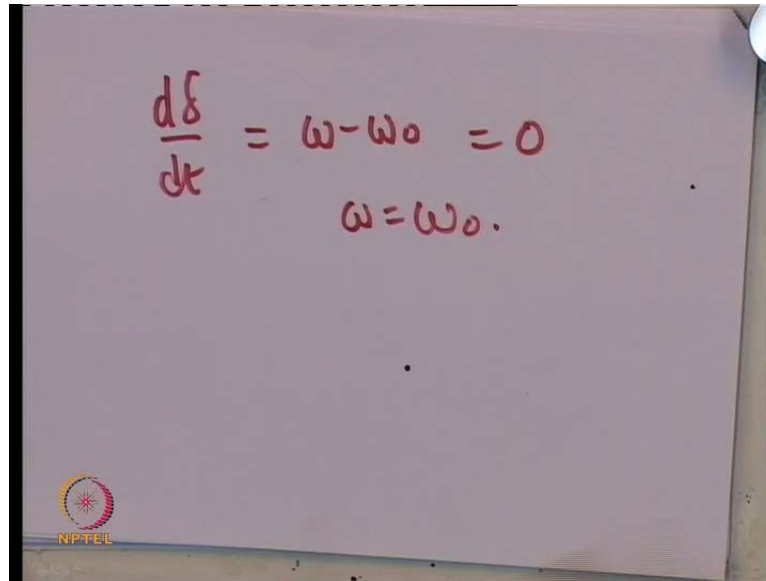 dδ/dt = ω-ω0 = 0
ω=ω0.
NPTEL